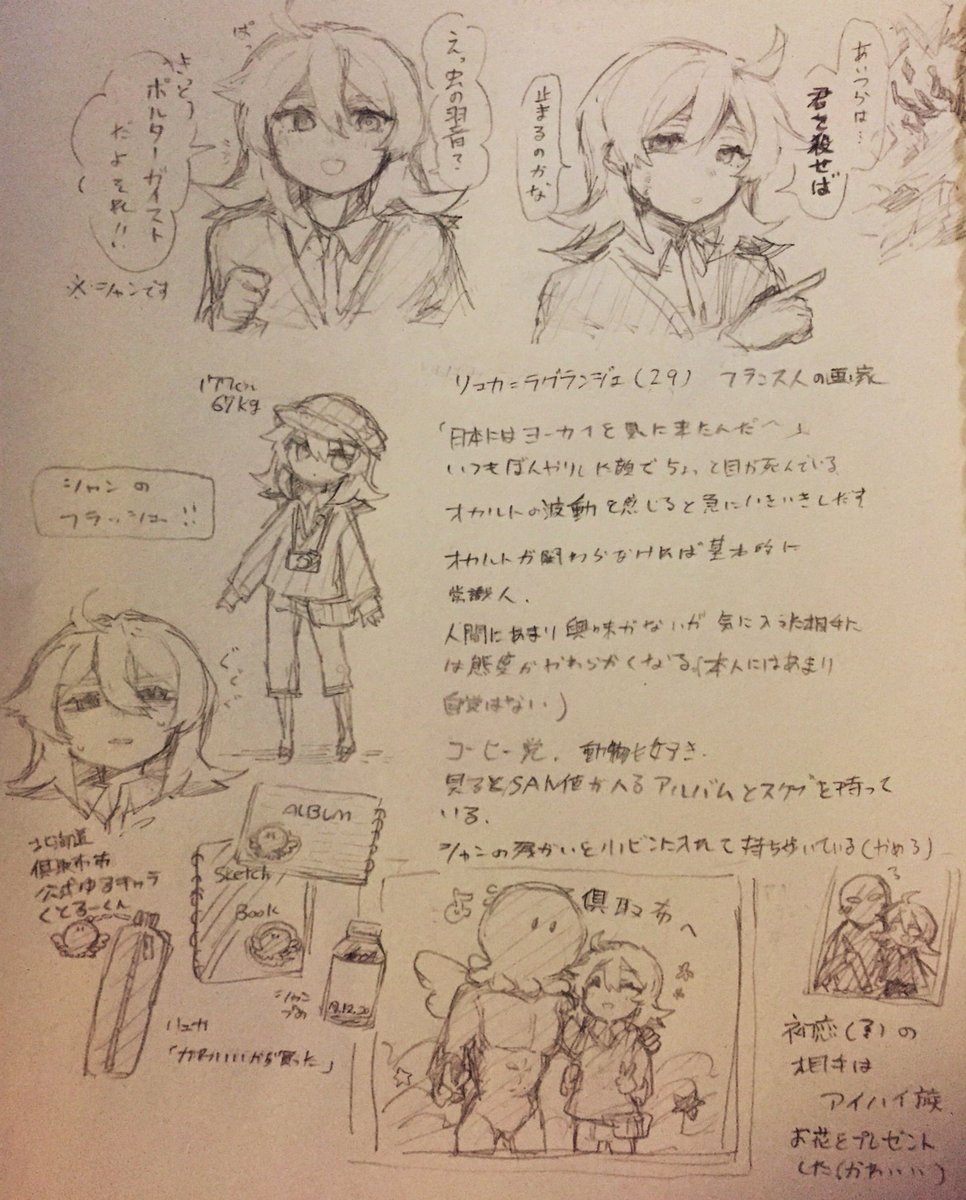 あいつらは…
君を殺せば
止まるのかな
えっ虫の羽音て
ぱっ
きっとう
ポルターガイスト
だよそれ!!
※シャンです
リュカ=ラグランジェ(29) フランス人の画家
「日本にはヨーカイを見に来たんだヘ」
いつもぼんやりした顔でちょっと目が死んでいる
オカルトの波動を感じると急にいきいきしだす
オカルトが関わらなければ基本的に
常識人.
人間にあまり興味がないが気に入った相手に
は態度がやわらかくなる。(本人にはあまり
自覚はない)
コーヒー党. 動物も好き.
見るとSAN値が入るアルバムとスケブを持って
いる.
シャンの死がいを小ビンに入れて持ち歩いている(やめろ)
177cm
67kg
シャンの
フラッシュ!!
北海道
倶取市
公式ゆるキャラ
くとるーくん
ALBUM
Sketch
Book
シャン
づめ
18.12.20
リュカ
「かわいいから買った」
倶取市
へ
初恋(?)の
相手は
アイハイ族
お花をプレゼント
した(かわいい)